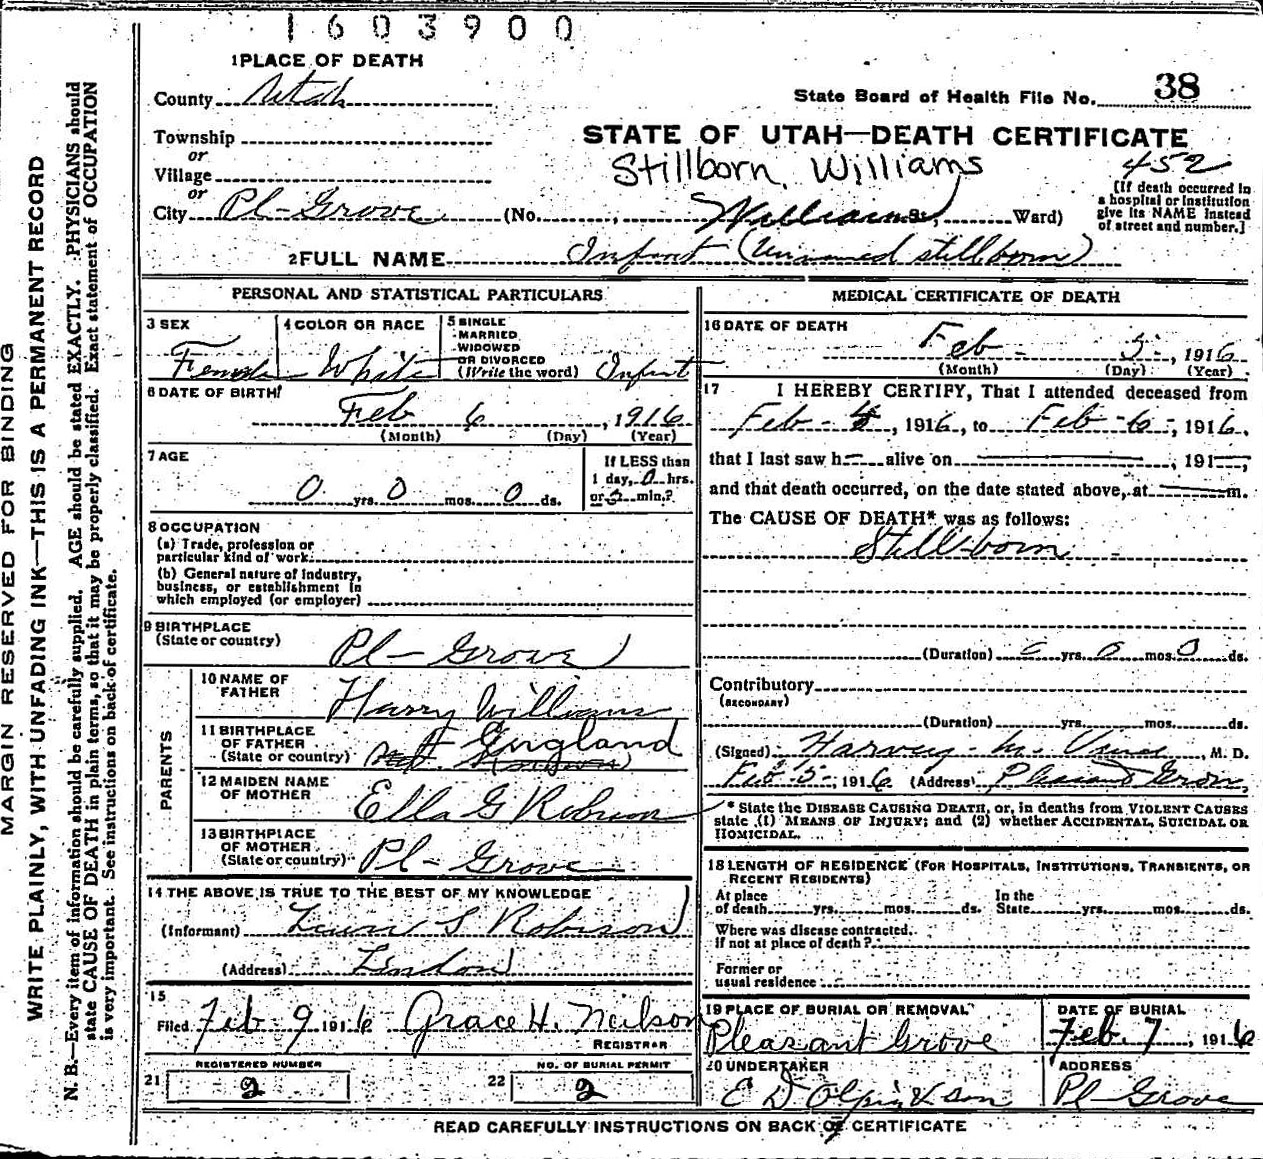 1603900
1 PLACE OF DEATH
County Utah
State Board of Health File No. 38
Township
or
Village
or
City Pl-Grove (No. , Williams St., Ward)
STATE OF UTAH—DEATH CERTIFICATE
Stillborn Williams
452
[If death occurred in
a hospital or institution
give its NAME instead
of street and number.]
2 FULL NAME Infant (Unnamed stillborn)
PERSONAL AND STATISTICAL PARTICULARS
3 SEX
Female
4 COLOR OR RACE
White
5 SINGLE
MARRIED
WIDOWED
OR DIVORCED
(Write the word) Infant
6 DATE OF BIRTH
Feb 6, 1916
(Month) (Day) (Year)
7 AGE
0 yrs. 0 mos. 0 ds.
If LESS than
1 day, 0 hrs.
or 0 min.?
8 OCCUPATION
(a) Trade, profession or
particular kind of work
(b) General nature of industry,
business, or establishment in
which employed (or employer)
9 BIRTHPLACE
(State or country)
Pl-Grove
PARENTS
10 NAME OF
FATHER
Harry Williams
11 BIRTHPLACE
OF FATHER
(State or country)
England
12 MAIDEN NAME
OF MOTHER
Ella G Robison
13 BIRTHPLACE
OF MOTHER
(State or country)
Pl-Grove
14 THE ABOVE IS TRUE TO THE BEST OF MY KNOWLEDGE
(Informant) S Robison
(Address) Lindon
15
Filed Feb 9 1916 Grace H. Neilson
REGISTRAR
REGISTERED NUMBER
21 2
NO. OF BURIAL PERMIT
22 2
MEDICAL CERTIFICATE OF DEATH
16 DATE OF DEATH
Feb 5, 1916
(Month) (Day) (Year)
17 I HEREBY CERTIFY, That I attended deceased from
Feb-5, 1916, to Feb-6-, 1916,
that I last saw h— alive on —, 191—,
and that death occurred, on the date stated above, at — m.
The CAUSE OF DEATH* was as follows:
Still-born
(Duration) 0 yrs. 0 mos. 0 ds.
Contributory
(SECONDARY)
(Duration) yrs. mos. ds.
(Signed) Harvey M. , M. D.
Feb-5-, 1916 (Address) Pleasant Grove
* State the DISEASE CAUSING DEATH, or, in deaths from VIOLENT CAUSES
state (1) MEANS OF INJURY; and (2) whether ACCIDENTAL, SUICIDAL OR
HOMICIDAL.
18 LENGTH OF RESIDENCE (FOR HOSPITALS, INSTITUTIONS, TRANSIENTS, OR
RECENT RESIDENTS)
At place
of death yrs. mos. ds.
In the
State yrs. mos. ds.
Where was disease contracted,
If not at place of death?
Former or
usual residence
19 PLACE OF BURIAL OR REMOVAL
Pleasant Grove
DATE OF BURIAL
Feb. 7, 1916
20 UNDERTAKER
E D Olpin & Son
ADDRESS
Pl Grove
READ CAREFULLY INSTRUCTIONS ON BACK OF CERTIFICATE
MARGIN RESERVED FOR BINDING
WRITE PLAINLY, WITH UNFADING INK—THIS IS A PERMANENT RECORD
N. B.—Every item of information should be carefully supplied. AGE should be stated EXACTLY. PHYSICIANS should
state CAUSE OF DEATH in plain terms, so that it may be properly classified. Exact statement of OCCUPATION
is very important. See instructions on back of certificate.